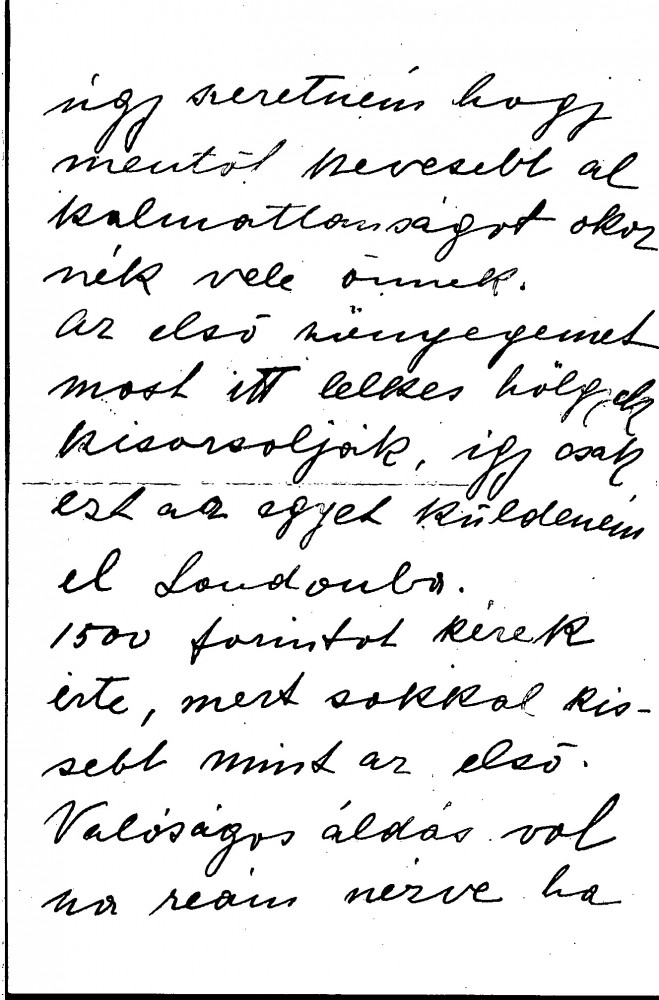 úgy szeretném hogy
mentől kevesebb al
kalmatlanságot okoz
nék vele önnek.
Az első szőnyegemet
most itt lelkes hölgyek
kisorsolják, így csak
ezt az egyet küldeném
el Londonba.
1500 forintot kérek
érte, mert sokkal kis-
sebb mint az első.
Valóságos áldás vol
na reám nézve ha